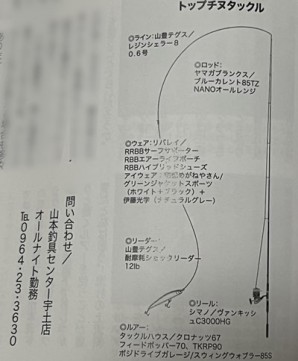 トップチヌタックル
◎ライン：山豊テグス／
レジンシェラー8
0.6号
◎ロッド：
ヤマガブランクス／
ブルーカレント85TZ
NANOオールレンジ
◎ウェア：リバレイ／
RRBBサーフサポーター
RBBエアーライフポーチ
RBBハイブリッドシューズ
アイウェア：ねやさん／
グリーンジャケットスポーツ
（ホワイト＋ブラック）＋
伊藤光学（ナチュラルグレー）
◎リーダー：
山豊テグス／
耐摩耗ショックリーダー
12lb
◎リール：
シマノ／ヴァンキッシュC3000HG
◎ルアー：
タックルハウス／クロナッツ67
フィードポッパー70、TKRP90
ポジドライブガレージ／スウィングウォブラー85S
問い合わせ／
山本釣具センター宇土店
オールナイト勤務
℡0964・23・3630